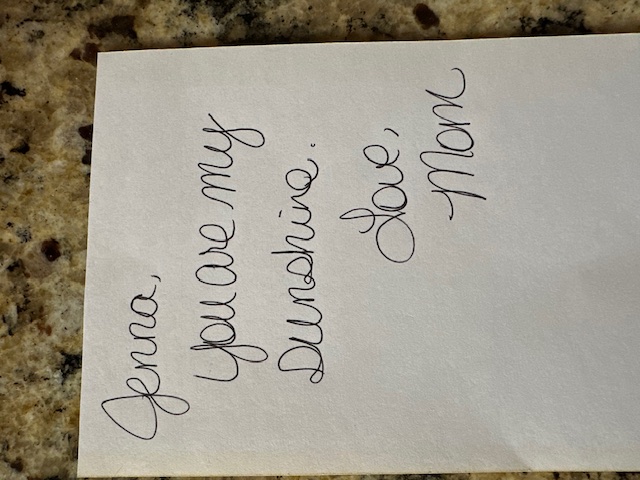 Jenna,
You are my
Sunshine.
Love,
Mom